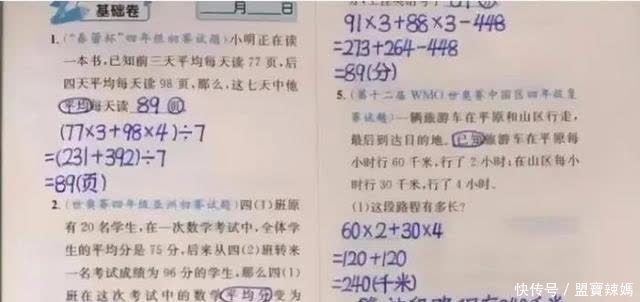 基础卷
月 日
1. ("春蕾杯"四年级初赛试题)小明正在读
一本书,已知前三天平均每天读 77 页,后
四天平均每天读 98 页,那么,这七天中他
平均每天读 89 页
(77×3+98×4)÷7
=(231+392)÷7
=89(页)
2. (世奥赛四年级亚洲初赛试题)四(1)班原
有 20 名学生,在一次数学考试中,全体学
生的平均分是 75 分,后来从四(2)班转来
一名考试成绩为 96 分的学生,那么四(1)
班在这次考试中的数学平均分变为
91×3+88×3-448
=273+264-448
=89(分)
5. (第十二届 WMO世奥赛中国区四年级复
赛试题)一辆旅游车在平原和山区行走,
最后到达目的地。已知旅游车在平原每
小时行 60 千米,行了 2 小时;在山区每小
时行 30 千米,行了 4 小时。
(1)这段路程有多长?
60×2+30×4
=120+120
=240(千米)
快传号/盟寶辣媽